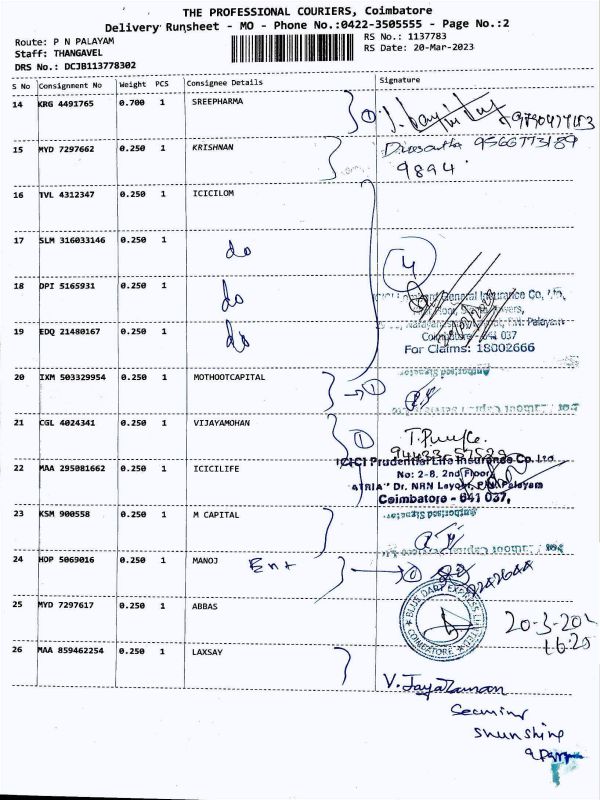 THE PROFESSIONAL COURIERS, Coimbatore
Delivery Runsheet - MO - Phone No.:0422-3505555 - Page No.:2
Route: P N PALAYAM
RS No.: 1137783
Staff: THANGAVEL
RS Date: 20-Mar-2023
DRS No.: DCJB113778302
S No Consignment No Weight PCS Consignee Details Signature
14 KRG 4491765 0.700 1 SREEPHARMA 1
15 MYD 7297662 0.250 1 KRISHNAN 9566773189
9894
16 TVL 4312347 0.250 1 ICICILOM
17 SLM 316033146 0.250 1 do 4
18 DPI 5165931 0.250 1 do
General Insurance Co, Ltd,
19 EDQ 21480167 0.250 1 do
Coimbatore - 641 037
For Claims: 18002666
20 IXM 503329954 0.250 1 MOTHOOTCAPITAL 1
Authorised Signatory
21 CGL 4024341 0.250 1 VIJAYAMOHAN 1
22 MAA 295081662 0.250 1 ICICILIFE
ICICI Prudential Life Insurance Co. Ltd
No: 2-8, 2nd Floor
"ATRIA" Dr. NRN Layout, P.N. Palayam
Coimbatore - 641 037,
23 KSM 900558 0.250 1 M CAPITAL
Authorised Signatory
24 HOP 5069016 0.250 1 MANOJ Ent
25 MYD 7297617 0.250 1 ABBAS
BLUE DART EXPRESS LTD
COIMBATORE
20-3-202
16:20
26 MAA 859462254 0.250 1 LAXSAY
V. Jayaraman